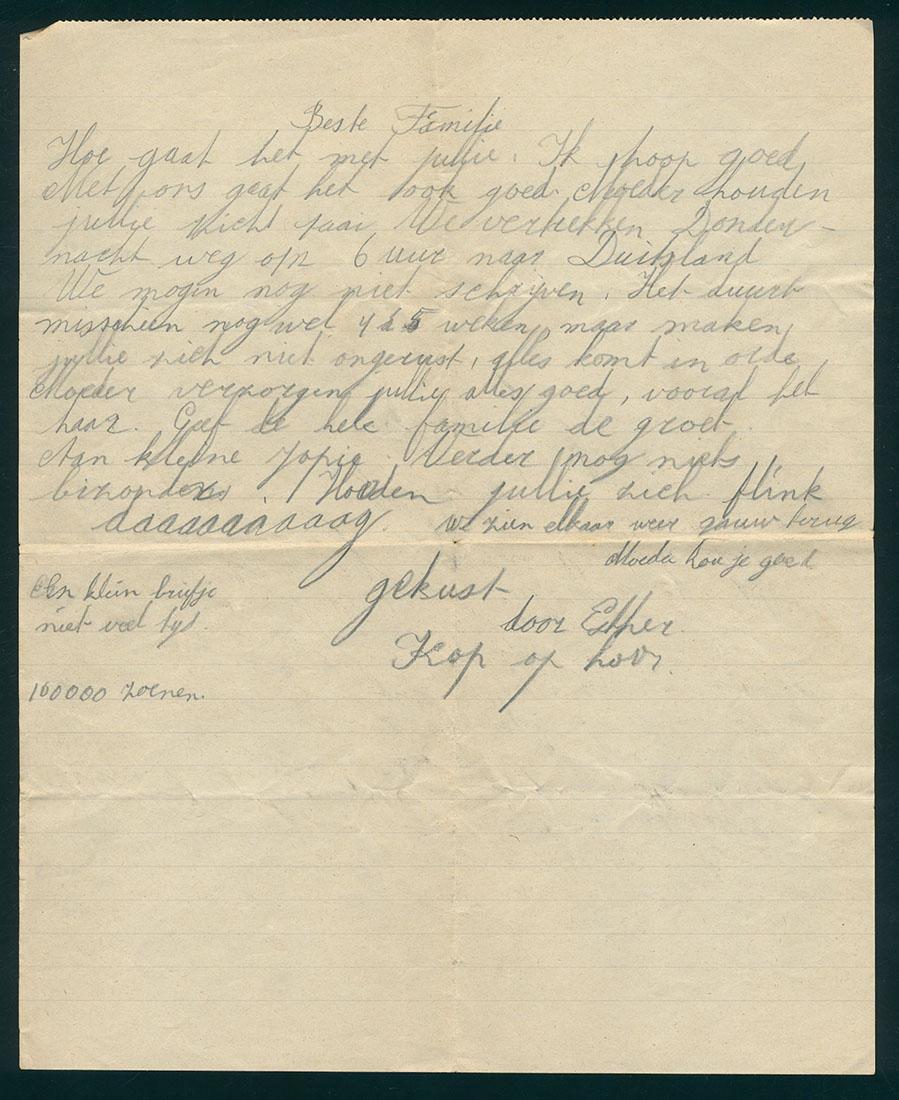 Beste Familie
Hoe gaat het met jullie. Ik hoop goed,
Met ons gaat het ook goed. Moeder houden
jullie zich taai We vertrekken Donder-
nacht weg om 6 uur naar Duitsland
We mogen nog niet schrijven. Het duurt
misschien nog wel 4 à 5 weken, maar maken
jullie zich niet ongerust, alles komt in orde,
Moeder verzorgen jullie alles goed, vooral het
haar. Geef de hele familie de groet.
Aan kleine Jopie. Verder nog niets
bizonders. Houden jullie zich flink
daaaaaaaaaag. We zien elkaar weer gauw terug
Moeder hou je goed
Een klein briefje
niet veel tijd.
gekust
door Esther.
Kop op hoor.
100000 zoenen.